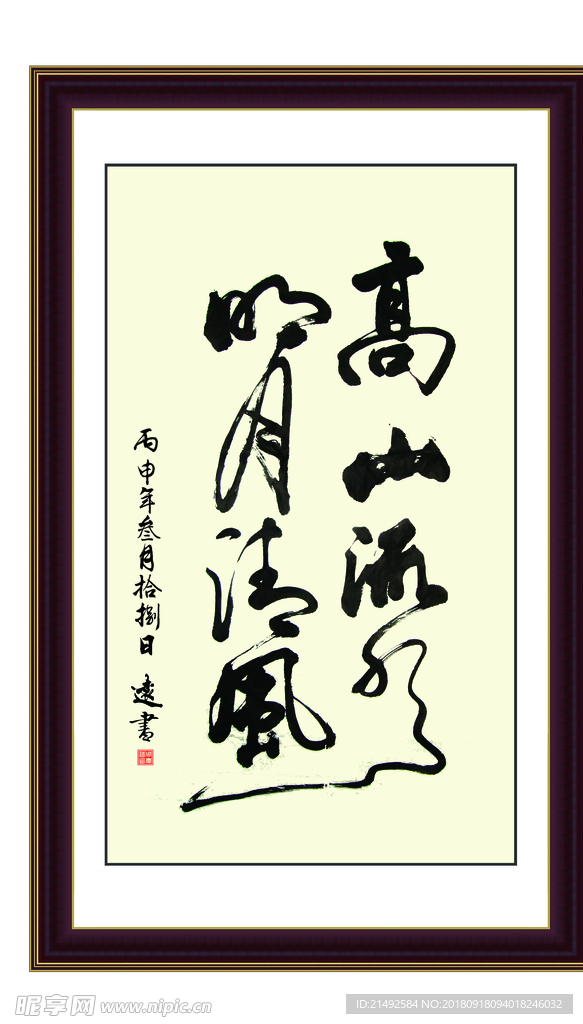 高山流水
明月清风
丙申年叁月拾捌日
远书
昵享网 www.nipic.cn
ID:21492584 NO:20180918094018246032